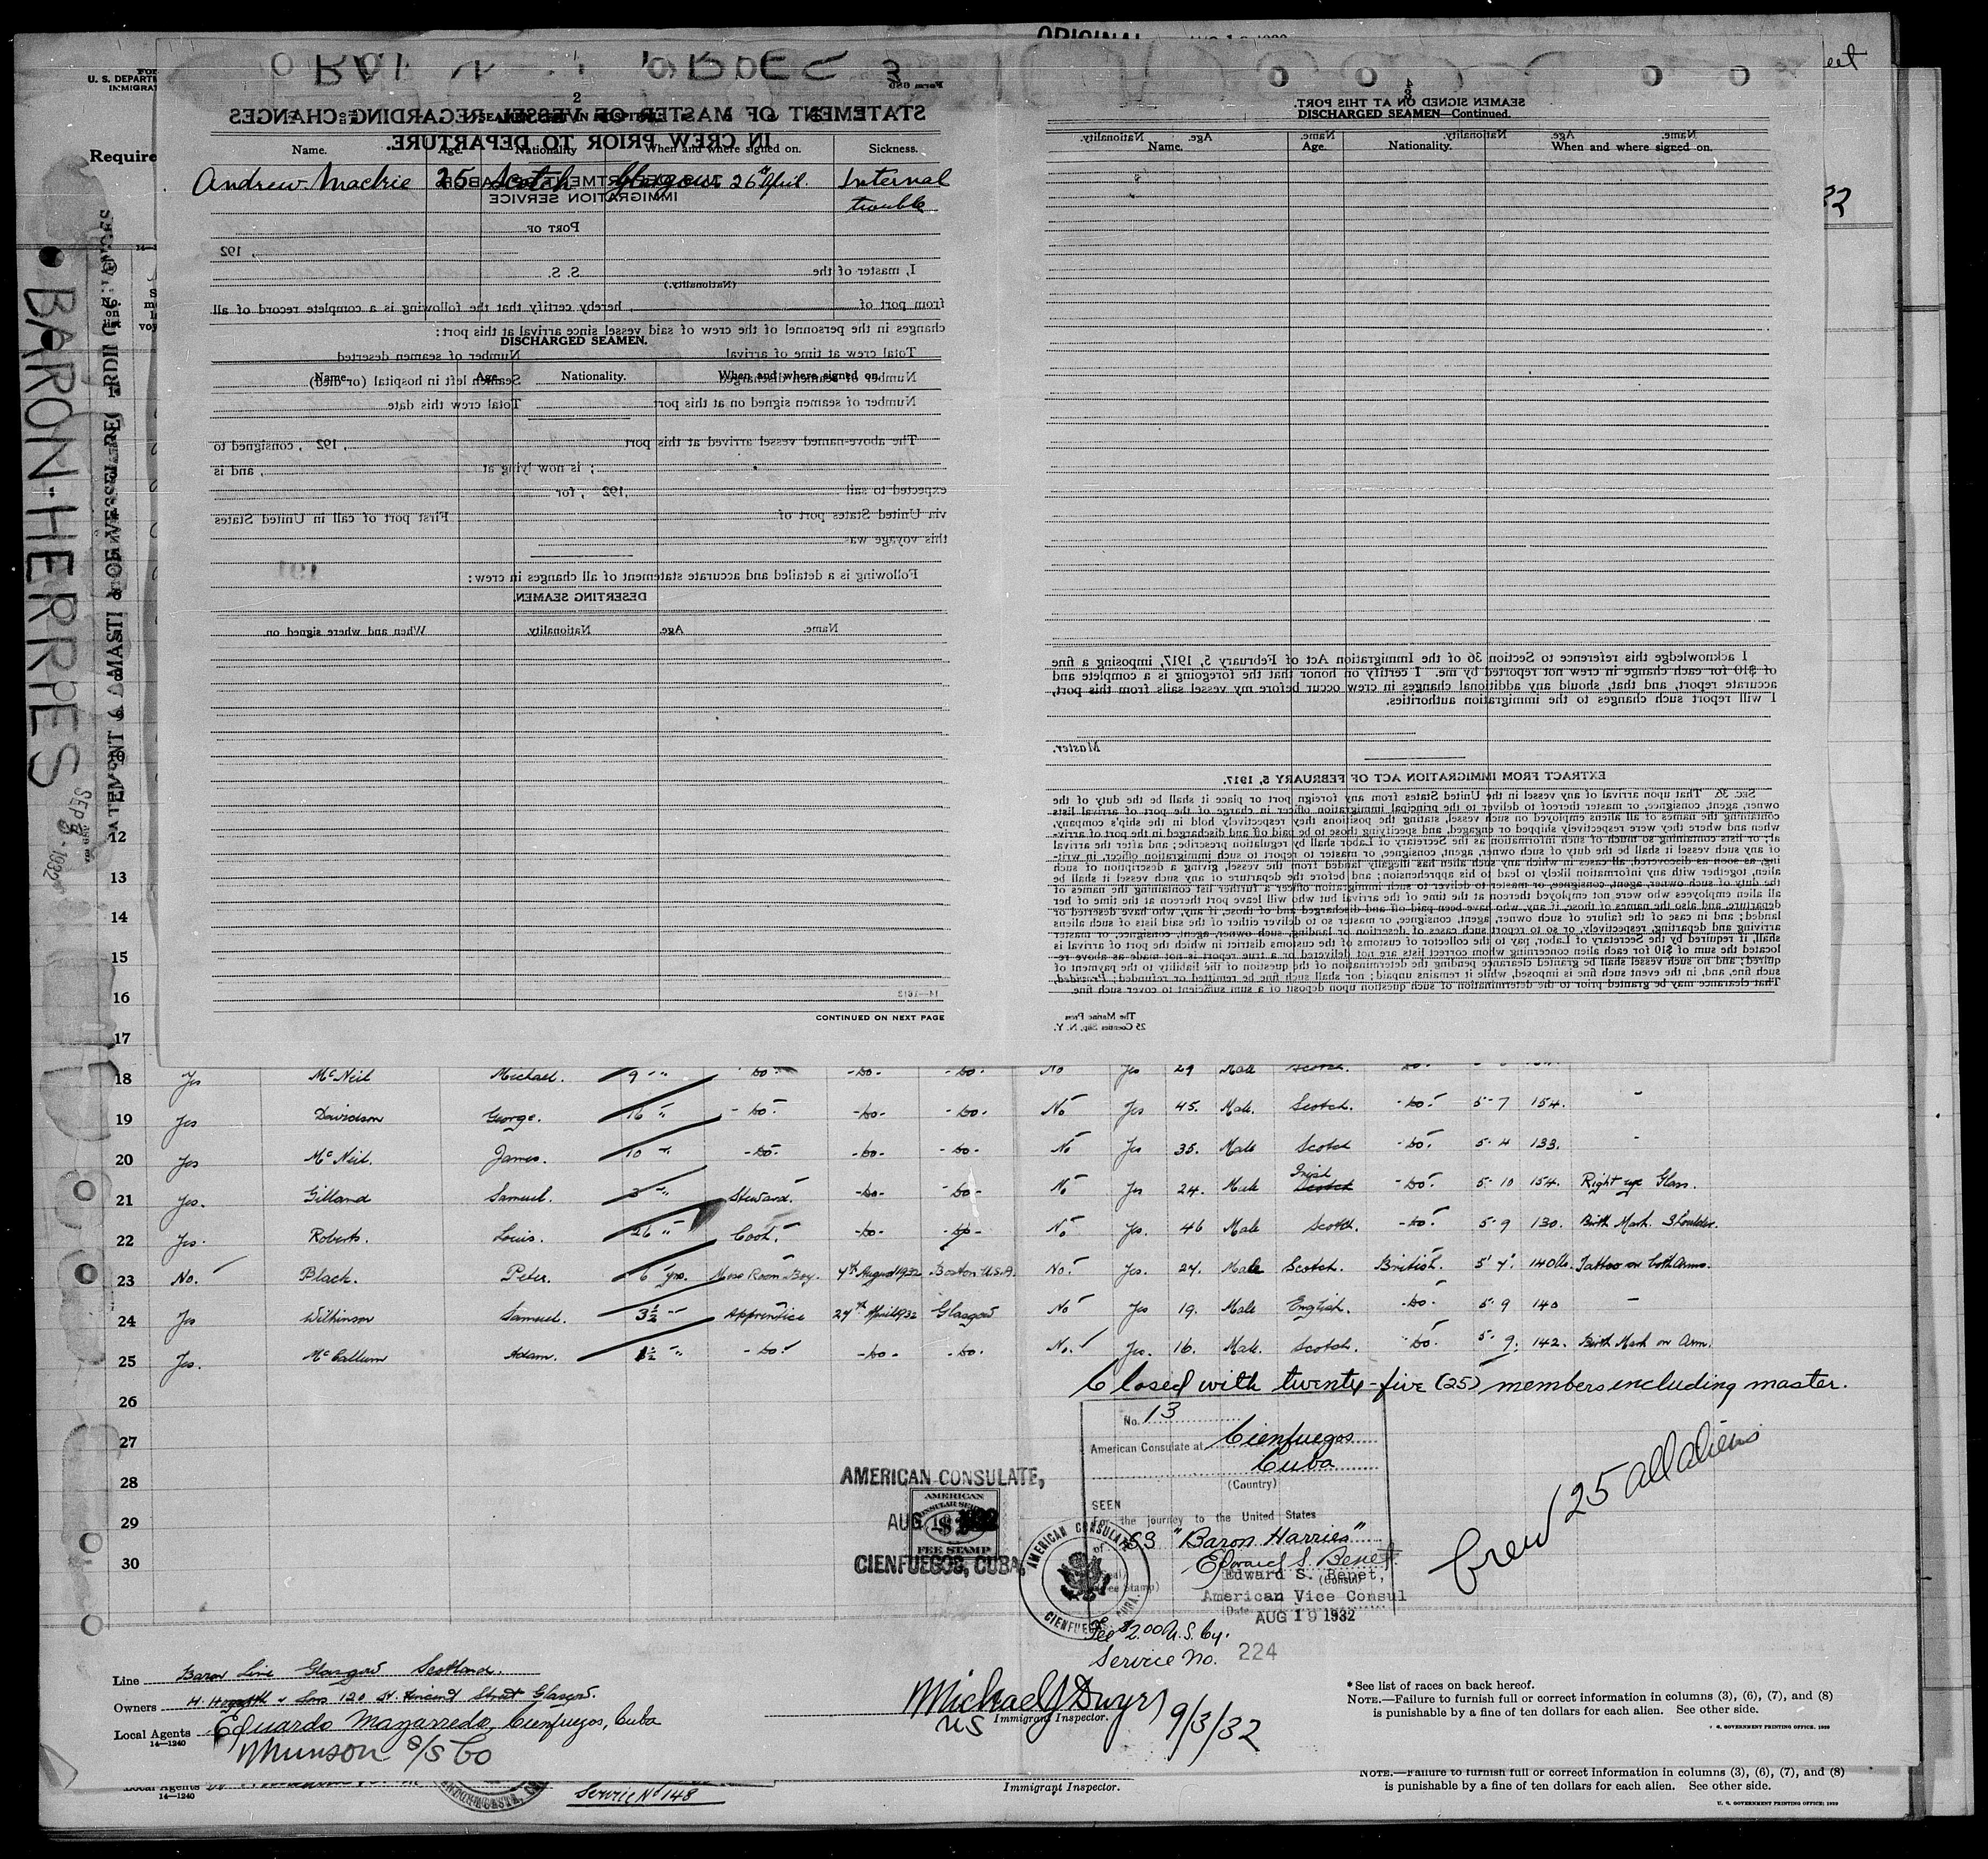 ORIGINAL
U. S. DEPART
IMMIGRAT
Require
BARON-HERRIES
SEP 3 - 1932
2
SEAMEN LEFT IN HOSPITAL
Name. Age. Nationality When and where signed on. Sickness.
Andrew Mackie 25 Scotch Glasgow 26th April. Internal
trouble
DISCHARGED SEAMEN.
Name. Age. Nationality. When and where signed on.
CONTINUED ON NEXT PAGE
DISCHARGED SEAMEN—Continued.
Name. Age. Nationality. When and where signed on.
Form 686
STATEMENT OF MASTER OF VESSEL REGARDING CHANGES
IN CREW PRIOR TO DEPARTURE.
U. S. DEPARTMENT OF LABOR
IMMIGRATION SERVICE
PORT OF
, 192
I, master of the S. S.
(Nationality.)
from port of , hereby certify that the following is a complete record of all
changes in the personnel of the crew of said vessel since arrival at this port:
Total crew at time of arrival Number of seamen deserted
Number of seamen discharged Seamen left in hospital (or died)
Number of seamen signed on at this port Total crew this date
The above-named vessel arrived at this port , 192 , consigned to
; is now lying at , and is
expected to sail , 192 , for
via United States port of First port of call in United States
this voyage was
Following is a detailed and accurate statement of all changes in crew:
DESERTING SEAMEN.
Name. Age. Nationality. When and where signed on
14—1612
4
SEAMEN SIGNED ON AT THIS PORT.
Name. Age. Nationality. Name. Age. Nationality.
I acknowledge this reference to Section 36 of the Immigration Act of February 5, 1917, imposing a fine
of $10 for each change in crew not reported by me. I certify on honor that the foregoing is a complete and
accurate report, and that, should any additional changes in crew occur before my vessel sails from this port,
I will report such changes to the immigration authorities.
Master.
EXTRACT FROM IMMIGRATION ACT OF FEBRUARY 5, 1917.
SEC. 36. That upon arrival of any vessel in the United States from any foreign port or place it shall be the duty of the
owner, agent, consignee, or master thereof to deliver to the principal immigration officer in charge of the port of arrival lists
containing the names of all aliens employed on such vessel, stating the positions they respectively hold in the ship's company,
when and where they were respectively shipped or engaged, and specifying those to be paid off and discharged in the port of arriv-
al; or lists containing so much of such information as the Secretary of Labor shall by regulation prescribe; and after the arrival
of any such vessel it shall be the duty of such owner, agent, consignee, or master to report to such immigration officer, in writ-
ing, as soon as discovered, all cases in which any such alien has illegally landed from the vessel, giving a description of such
alien, together with any information likely to lead to his apprehension; and before the departure of any such vessel it shall be
the duty of such owner, agent, consignee, or master to deliver to such immigration officer a further list containing the names of
all alien employees who were not employed thereon at the time of the arrival but who will leave port thereon at the time of her
departure, and also the names of those, if any, who have been paid off and discharged and of those, if any, who have deserted or
landed; and in case of the failure of such owner, agent, consignee, or master so to deliver either of the said lists of such aliens
arriving and departing, respectively, or so to report such cases of desertion or landing, such owner, agent, consignee, or master
shall, if required by the Secretary of Labor, pay to the collector of customs of the customs district in which the port of arrival is
located the sum of $10 for each alien concerning whom correct lists are not delivered or a true report is not made as above re-
quired; and no such vessel shall be granted clearance pending the determination of the question of the liability to the payment of
such fine, and, in the event such fine is imposed, while it remains unpaid; nor shall such fine be remitted or refunded; Provided,
That clearance may be granted prior to the determination of such question upon deposit of a sum sufficient to cover such fine.
The Marine Press
25 Coenties Slip, N. Y.
12
13
14
15
16
17
18 Yes McNeil Michael. 9 " -do- -do- -do- No Yes 29 Male Scotch. -do-
19 Yes Davidson George. 16 " -do- -do- -do- No Yes 45. Male. Scotch. -do- 5-7 154. -
20 Yes McNeil. James. 10 " -do- -do- -do- No Yes 35. Male Scotch -do- 5-4 133. -
21 Yes. Gilland Samuel. 3 " Steward. -do- -do- No Yes 24. Male Irish Scotch -do- 5-10 154. Right eye Glass.
22 Yes. Roberts. Louis. 26 " Cook. -do- -do- No Yes. 46 Male Scotch. -do- 5-9 130. Birth Mark Shoulder.
23 No. Black. Peter. 6 yrs. Mess Room Boy. 4th August 1932 Boston U.S.A. No. Yes. 24. Male Scotch. British. 5' 4" 140lb. Tattoo on both arms.
24 Yes Wilkinson Samuel. 3½ " Apprentice 24th April 1932 Glasgow No Yes 19. Male English. -do- 5-9 140 -
25 Yes. McCallum Adam. 1½ " -do- -do- -do- No. Yes. 16. Male. Scotch. -do- 5-9. 142. Birth Mark on Arm.
Closed with twenty-five (25) members including master.
26
27
28
29
30
No. 13
American Consulate at Cienfuegos
Cuba
(Country)
SEEN
For the journey to the United States
SS "Baron Harries"
Edward S. Benet
Edward S. Benet,
(Consul)
American Vice Consul
(Date) AUG 19 1932
Fee $2.00 U.S. Cy.
Service No. 224
AMERICAN CONSULATE,
AUG 19 1932
CIENFUEGOS, CUBA.
AMERICAN
CONSULAR SERVICE
$2
FEE STAMP
AMERICAN CONSULATE
CIENFUEGOS, CUBA
Crew 25 all aliens
Line Baron Line Glasgow Scotland.
Owners H. Hogarth & Sons 120 St. Vincent Street Glasgow.
Local Agents Eduardo Mazarredo, Cienfuegos, Cuba
14—1240
Munson S/S Co
Michael J Dwyer
US Immigrant Inspector. 9/3/32
*See list of races on back hereof.
NOTE.—Failure to furnish full or correct information in columns (3), (6), (7), and (8)
is punishable by a fine of ten dollars for each alien. See other side.
U. S. GOVERNMENT PRINTING OFFICE. 1929
Local Agents
14—1240
Service No 148
Immigrant Inspector.
NOTE.—Failure to furnish full or correct information in columns (3), (6), (7), and (8)
is punishable by a fine of ten dollars for each alien. See other side.
U. S. GOVERNMENT PRINTING OFFICE: 1929